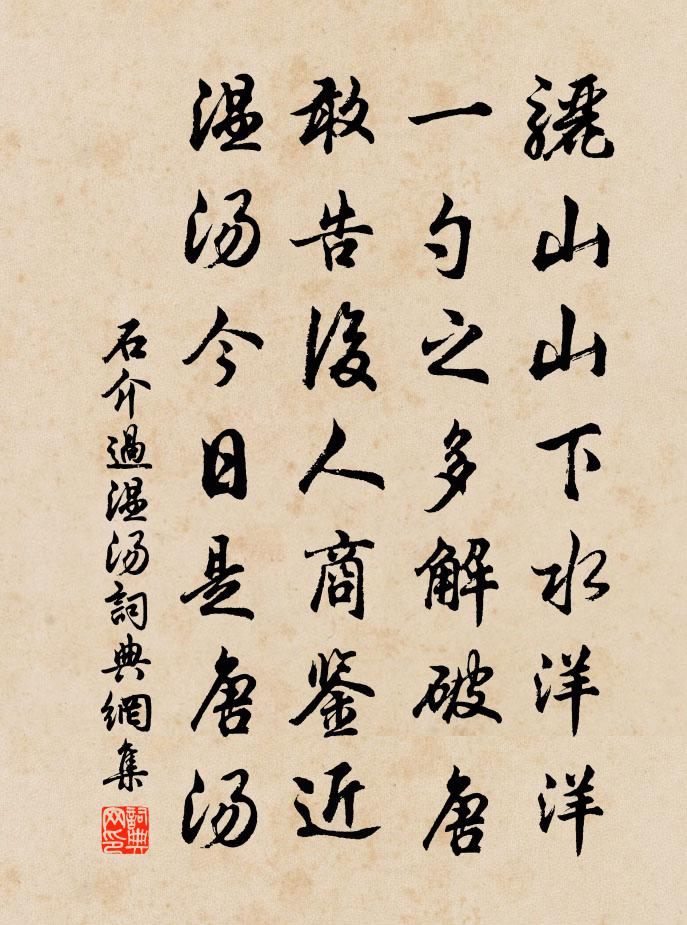 骊山山下水洋洋
一勺之多解破唐
敢告後人商鉴近
温汤今日是唐汤
石介過温汤詞典網集
詞典网印